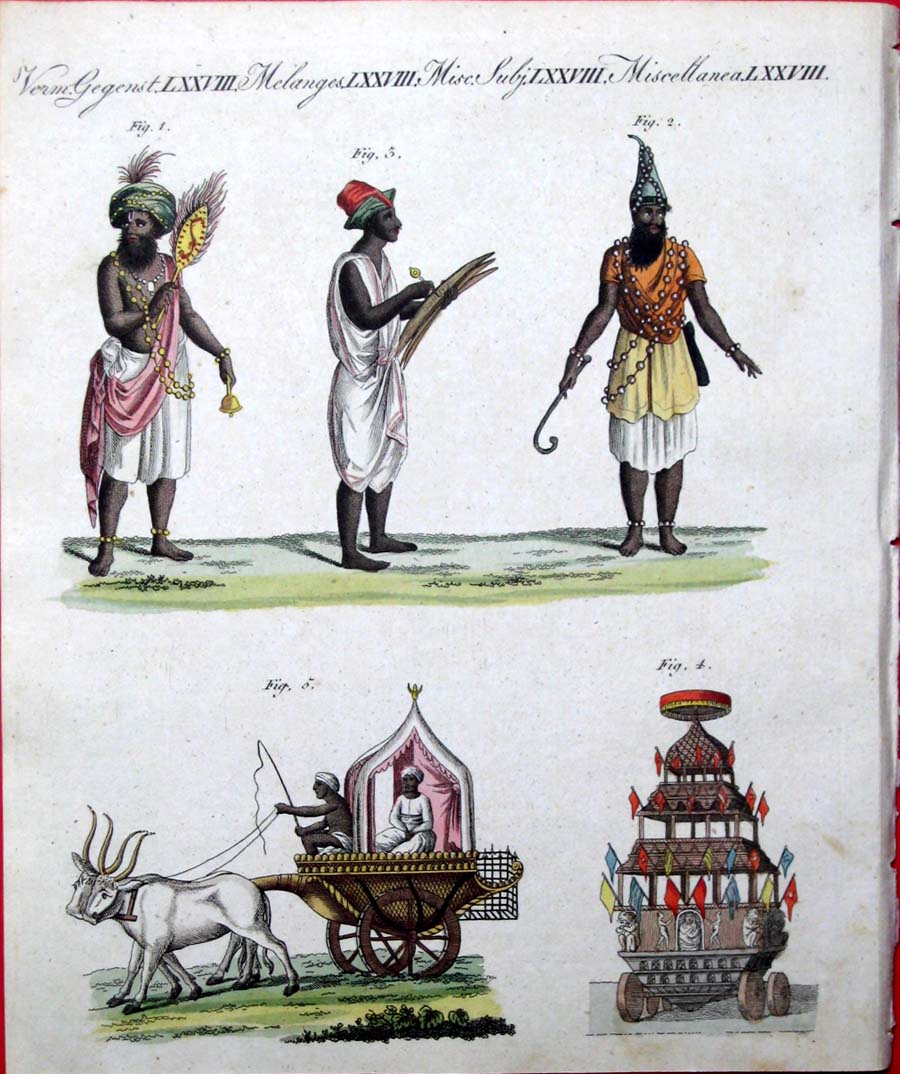 Verm. Gegenst. LXXVIII. Mélanges. LXXVIII. Misc. Subj. LXXVIII. Miscellanea. LXXVIII.
Fig. 1.
Fig. 3.
Fig. 2.
Fig. 5.
Fig. 4.